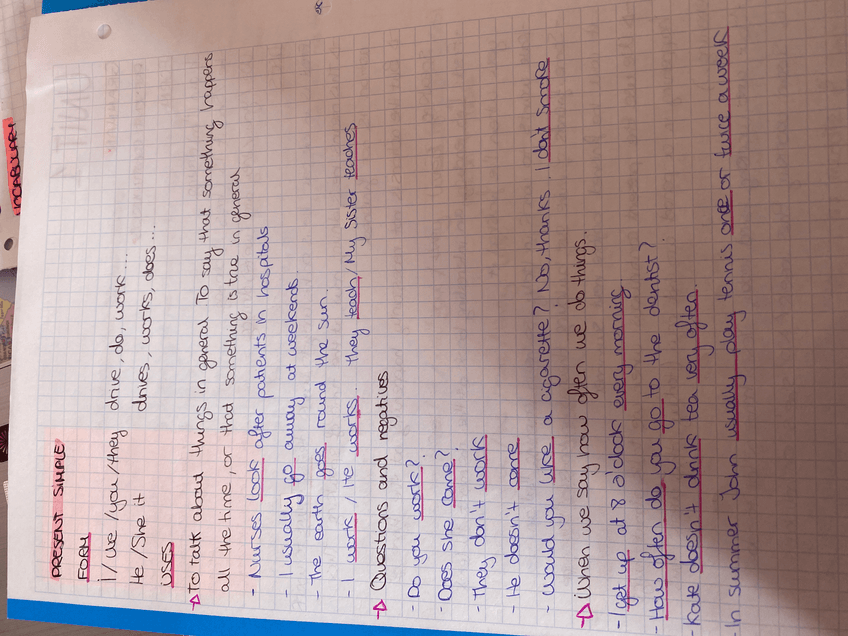 VOCABULARY
PRESENT SIMPLE
FORM
I/we/you/they drive, do, work...
He/She it drives, works, does...
USES
→ To talk about things in general To say that something happers
all the time, or that something is true in general
- Nurses look after patients in hospitals
- I usually go away at weekends.
- The earth goes round the sun.
- I work / He works.. they teach / My Sister teaches
→ Questions and negatives
- Do you work?
- Does she come?
- They don't work
- He doesn't come
- Would you like a cigarette? No, thanks. I don't smoke
→ When we say how often we do things.
- I get up at 8 o'clock every morning
- How often do you go to the dentist?
- Kate doesn't drink tea very often.
In summer John usually play tennis once or twice a week